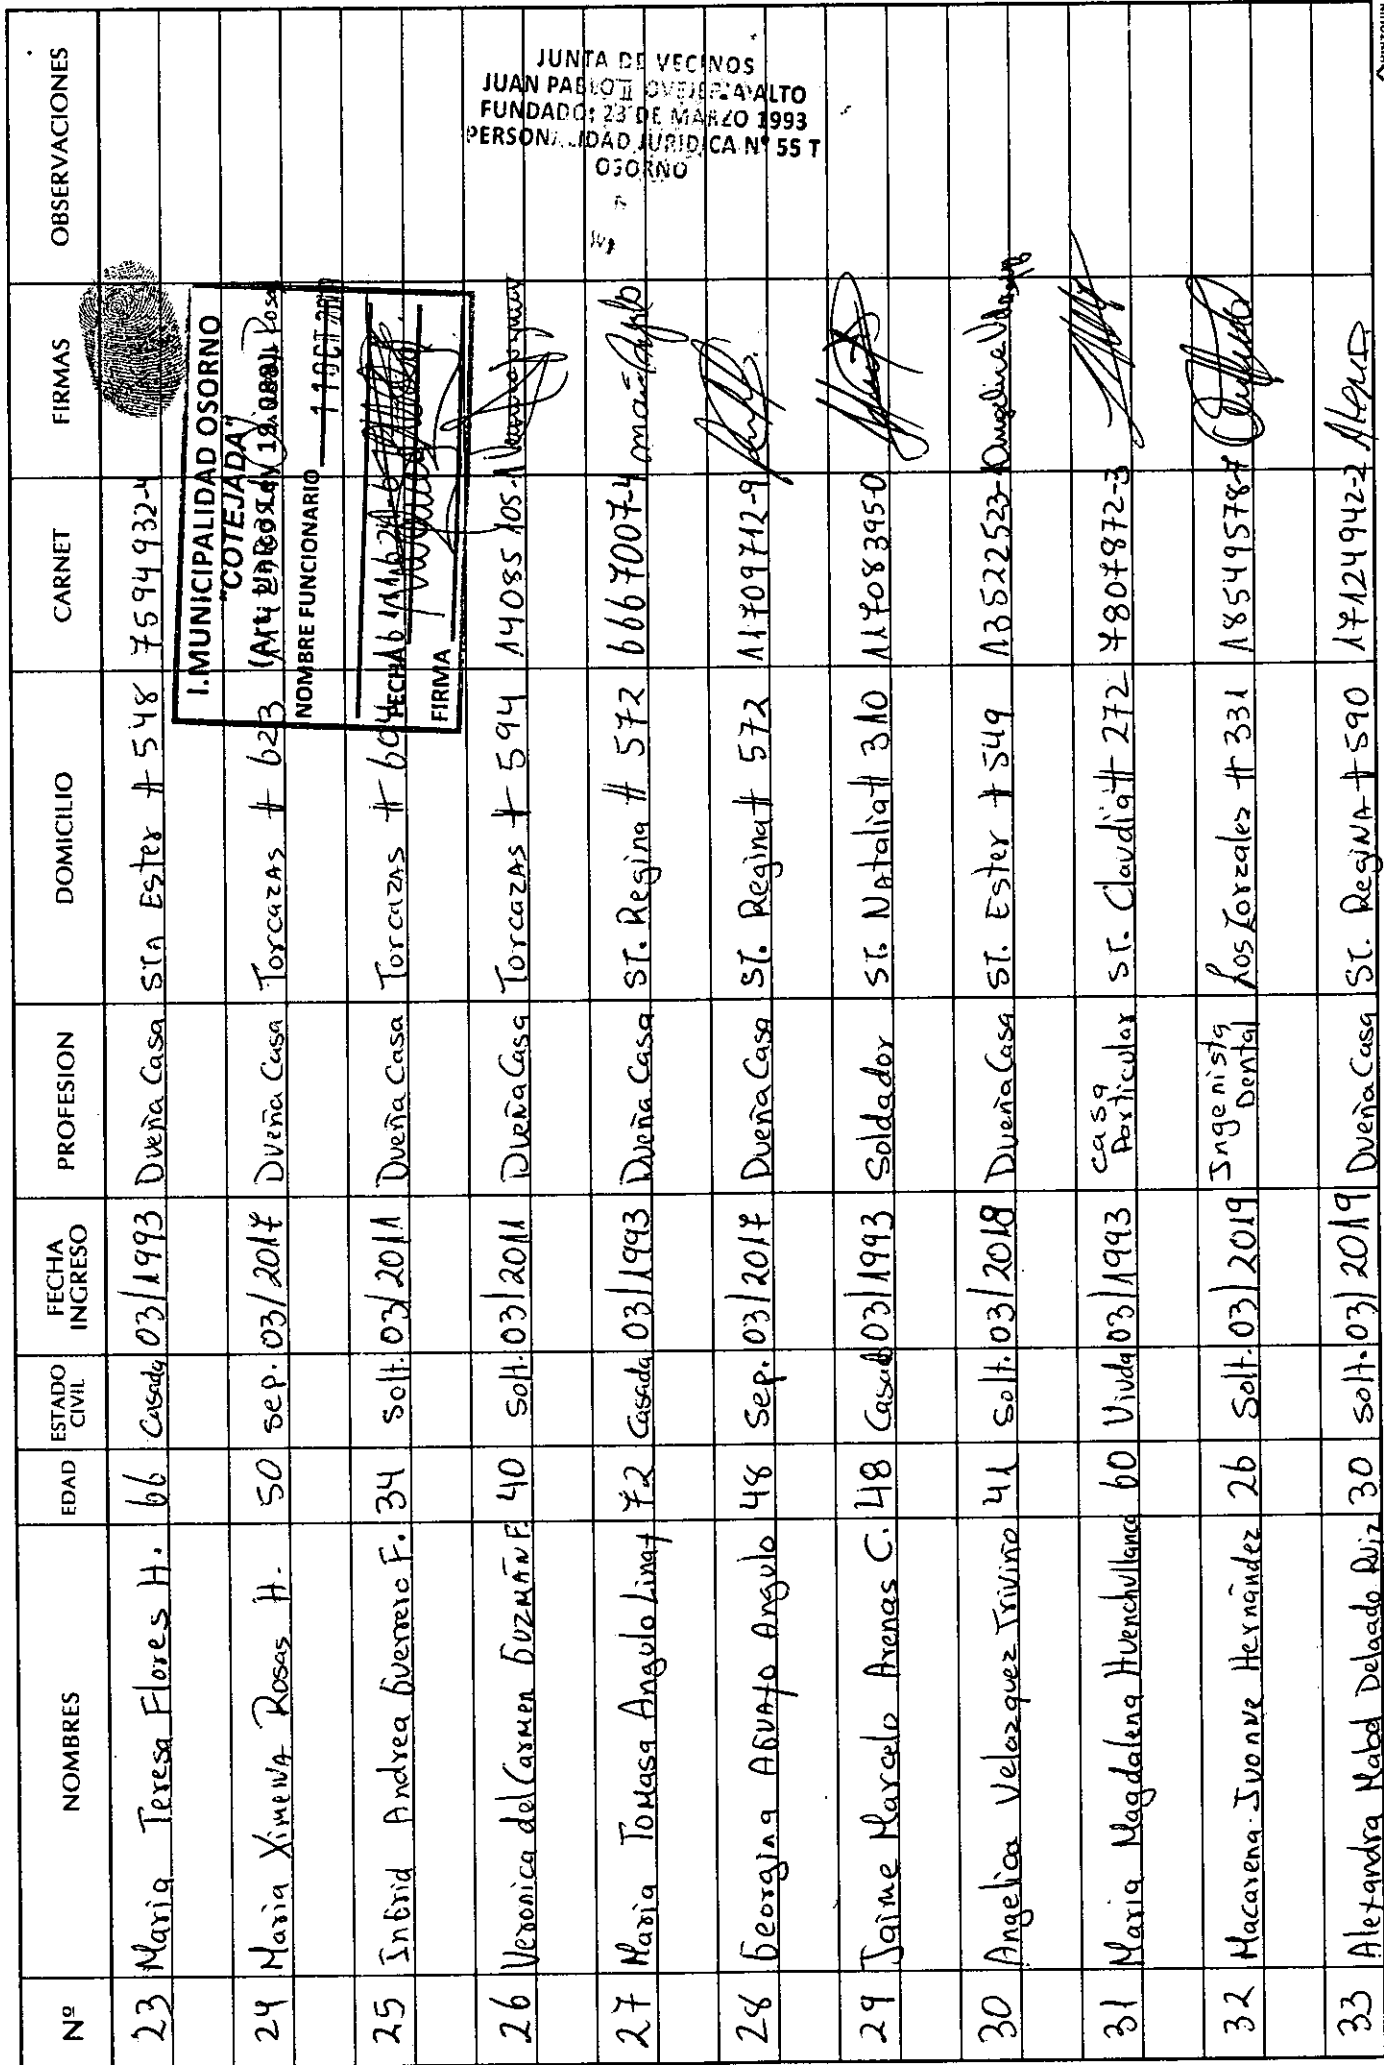 Nº NOMBRES EDAD ESTADO CIVIL FECHA INGRESO PROFESION DOMICILIO CARNET FIRMAS OBSERVACIONES
23 Maria Teresa Flores H. 66 Casada 03/1993 Dueña Casa STA Ester # 548 7594932-4
24 Maria XimeNA Rosas H. 50 sep. 03/2017 Dueña Casa TorcazAs # 623
25 InGrid Andrea Guerrero F. 34 solt. 03/2011 Dueña Casa TorcazAs # 604
26 Veronica del Carmen GUZMÁN F. 40 solt. 03/2011 Dueña Casa TorcazAs # 594 14085105-1
27 Maria TOMasa Angulo Linay 72 Casada 03/1993 Dueña Casa ST. Regina # 572 6667007-4
28 Georgina AGUAyo Angulo 48 Sep. 03/2017 Dueña Casa ST. Regina # 572 11709712-9
29 Jaime Marcelo Arenas C. 48 Casado 03/1993 Soldador ST. NAtalia # 310 11708395-0
30 Angelica Velazquez Triviño 41 solt. 03/2018 Dueña Casa ST. Ester # 549 13522523-
31 Maria Magdalena Huenchullanca 60 Viuda 03/1993 casa Particular ST. Claudia # 272 7807872-3
32 Macarena Ivonne Hernández 26 Solt. 03/2019 Ingenista Dental Los Zorzales # 331 18549578-7
33 Alexandra Mabel Delgado Ruiz 30 solt. 03/2019 Dueña Casa ST. RegiNA # 590 17124942-2
I.MUNICIPALIDAD OSORNO
"COTEJADA"
NOMBRE FUNCIONARIO
11 OCT
FECHA
FIRMA
JUNTA DE VECINOS
JUAN PABLO II OVEJERIA ALTO
FUNDADO: 23 DE MARZO 1993
PERSONALIDAD JURIDICA Nº 55 T
OSORNO